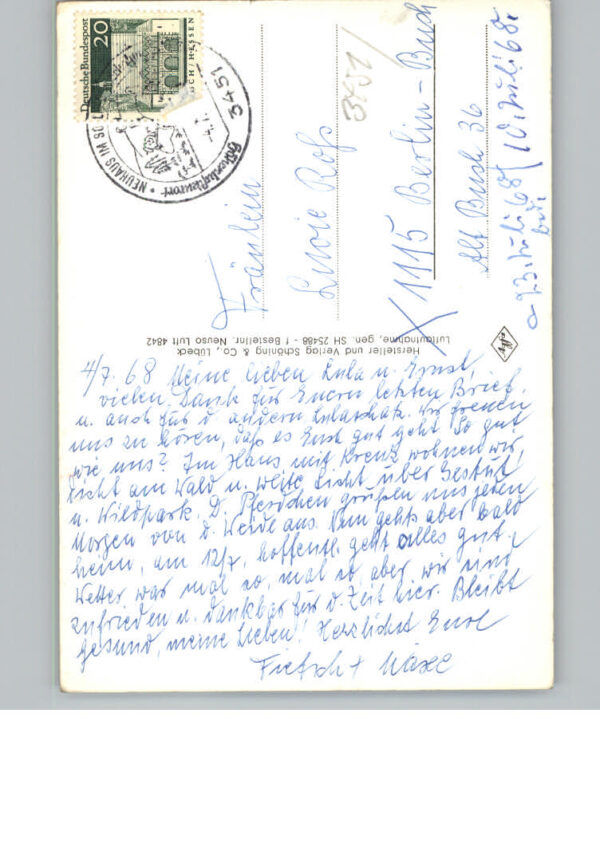 4/7. 68 Meine lieben Lula u. Ernst,
vielen Dank für Euern letzten Brief,
u. auch für d. andern Lulaschatz. Wir freuen
uns zu hören, daß es Euch gut geht. So gut
wie uns? Im Haus mit Kreuz wohnen wir,
dicht am Wald u. Weite Sicht über Gestüt
u. Wildpark. D. Pferdchen grüßen uns jeden
Morgen von d. Weide aus. Nun gehts aber bald
heim, am 12/7, hoffentl. geht alles gut.
Wetter war mal so, mal so, aber wir sind
zufrieden u. dankbar für d. Zeit hier. Bleibt
gesund, meine Lieben! Herzlichst Eure
Fräulein
Roß
1115 Berlin-Buch
Alt Buch 36
3451
23. Juli 68
10. Juli 68
Hersteller und Verlag Schöning & Co., Lübeck
Luftaufnahme, gen. SH 25488 - f Bestellnr. Neuso Luft 4842
Deutsche Bundespost
20
3451
NEUHAUS IM SOL
Höhenluftkurort